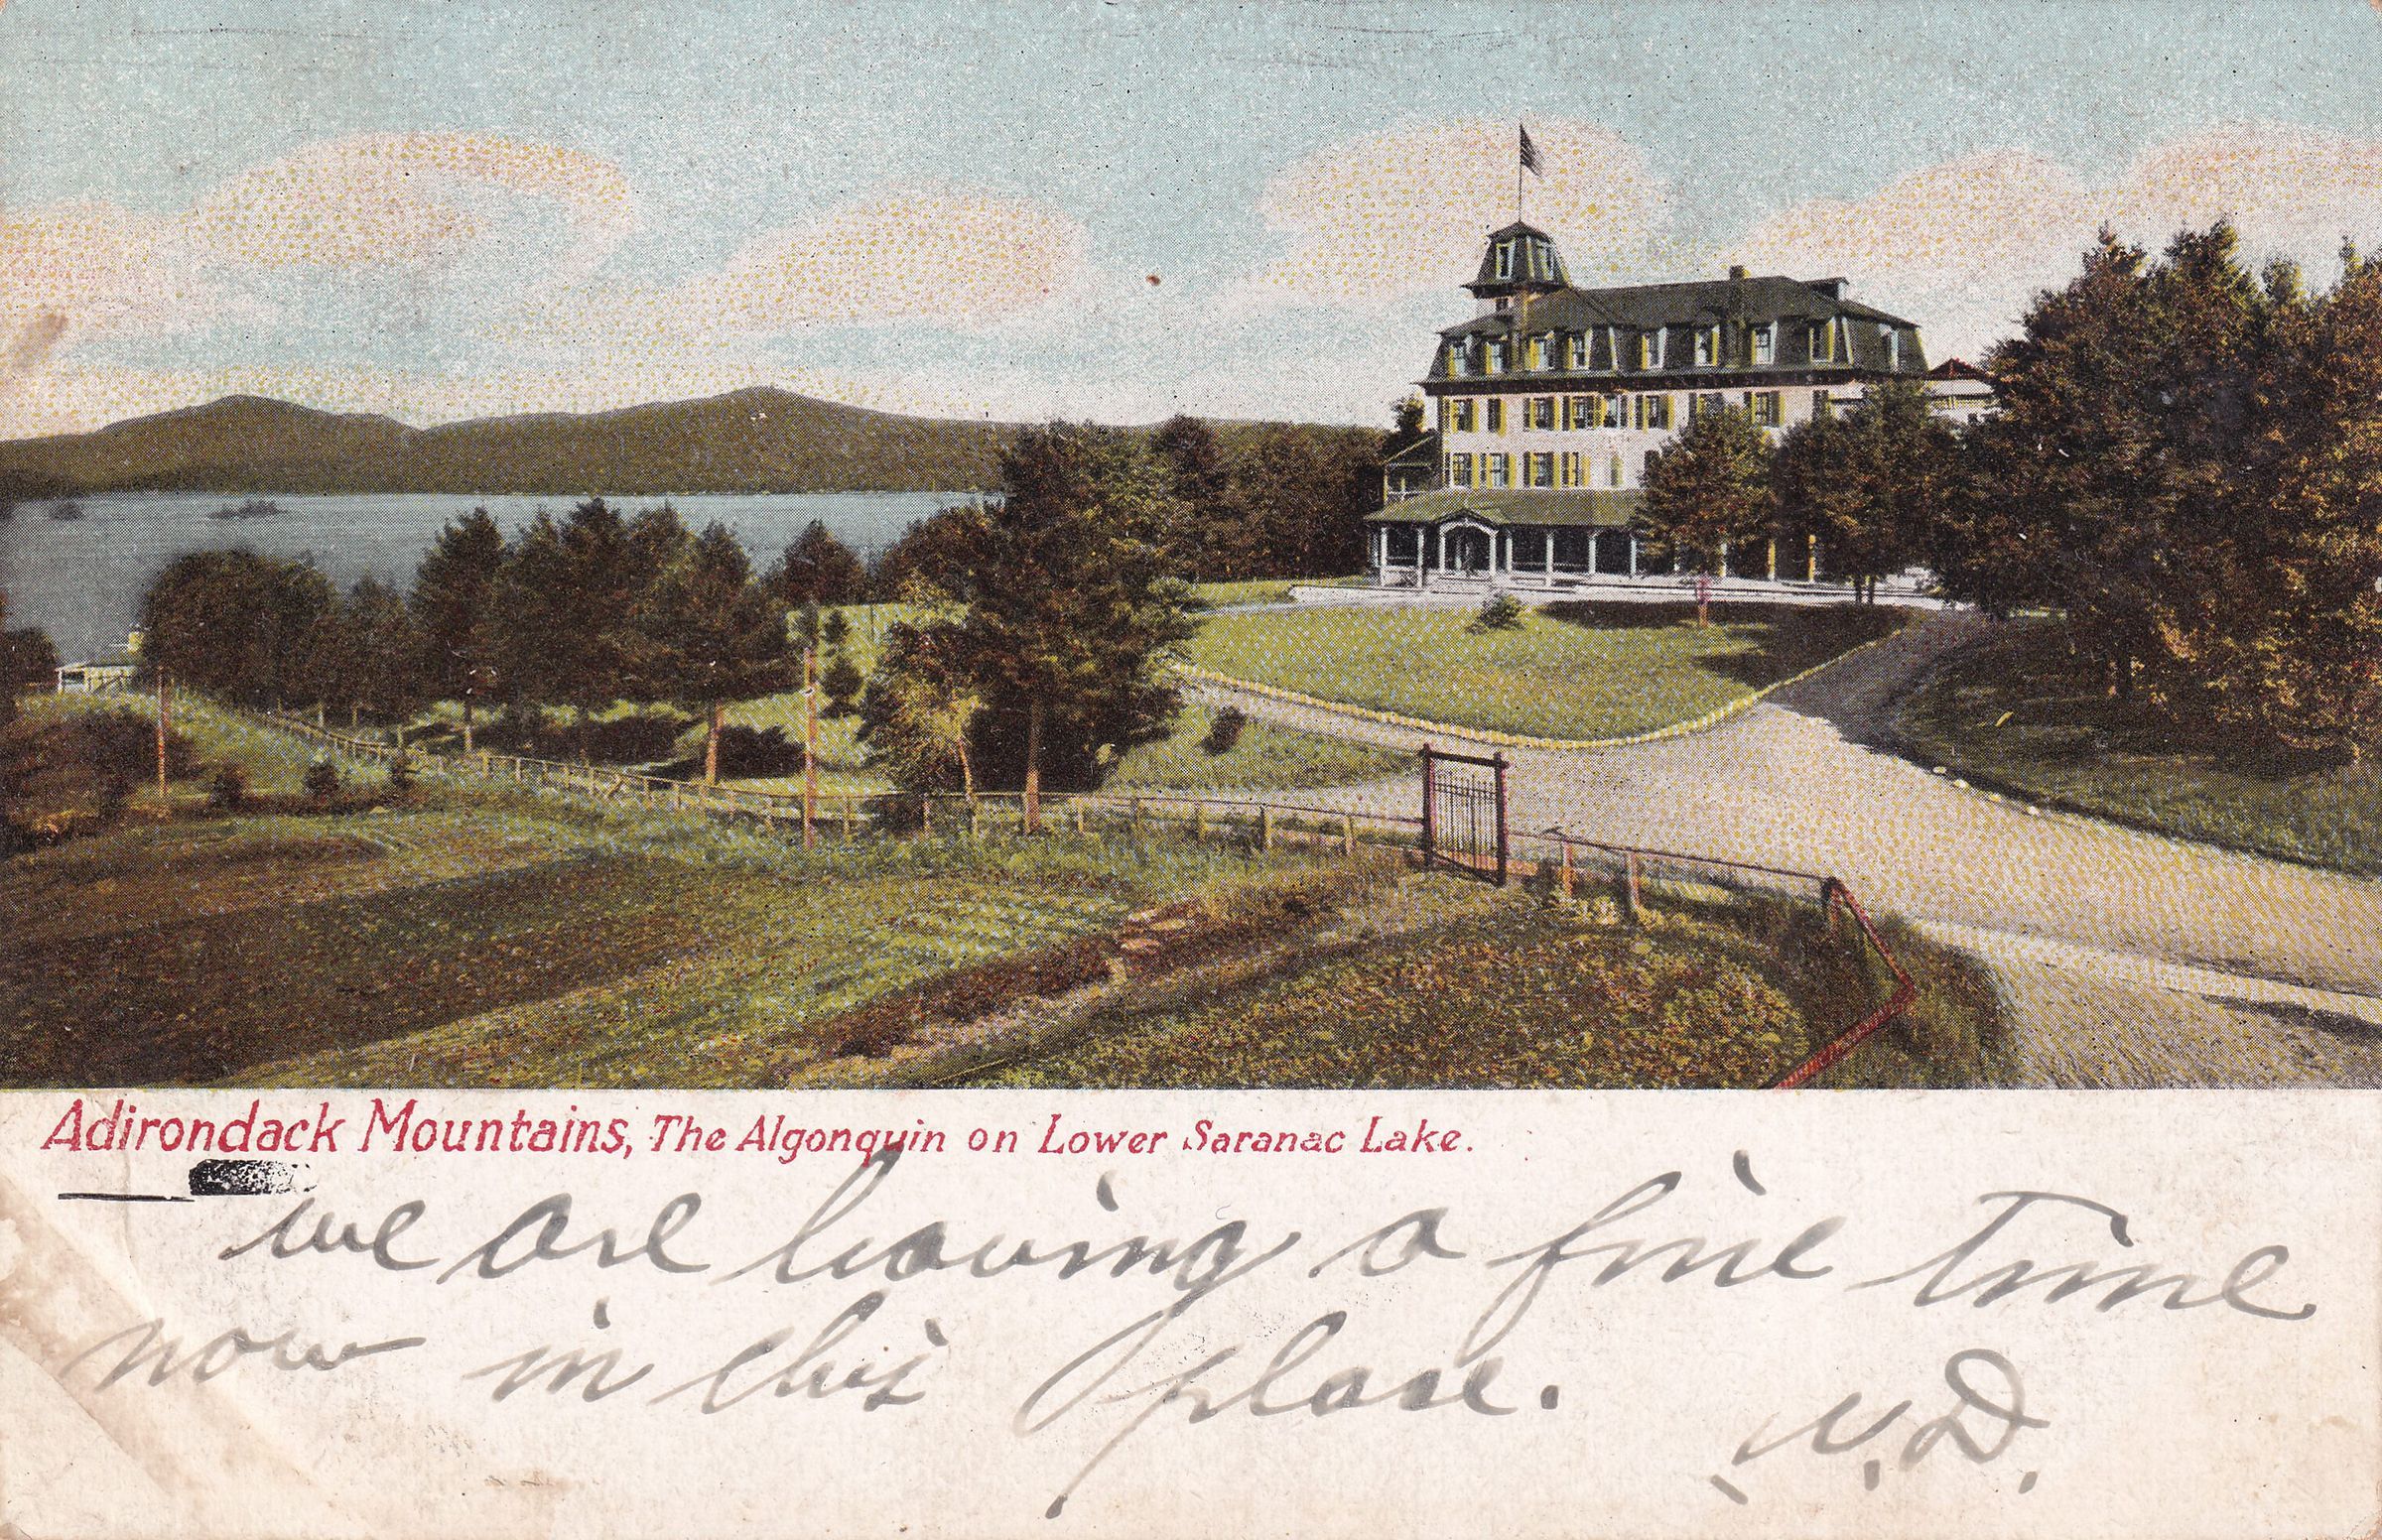 Adirondack Mountains, The Algonquin on Lower Saranac Lake.
we are having a fine time
now in this place.
N.D.